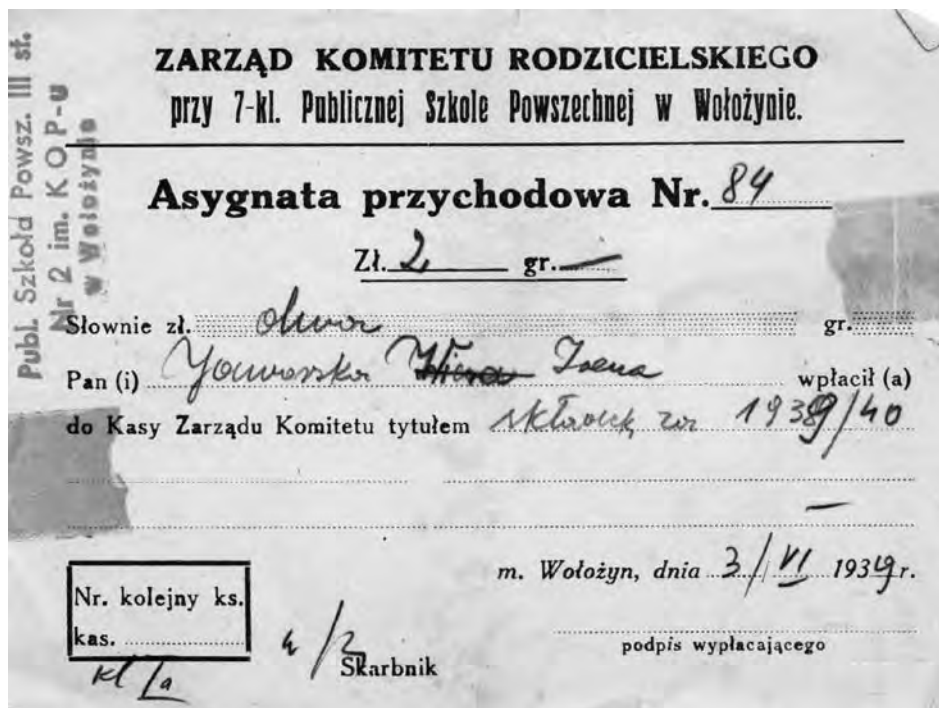 Publ. Szkoła Powsz. III st.
Nr 2 im. K O P-u
w Wołożynie
ZARZĄD KOMITETU RODZICIELSKIEGO
przy 7-kl. Publicznej Szkole Powszechnej w Wołożynie.
Asygnata przychodowa Nr. 84
Zł. 2 gr. —
Słownie zł. dwa gr.
Pan (i) Jaworska Irena wpłacił (a)
do Kasy Zarządu Komitetu tytułem składek za 1939/40
—
m. Wołożyn, dnia 3/VI 1939 r.
Nr. kolejny ks.
kas.
podpis wypłacającego
Skarbnik
kl Ia